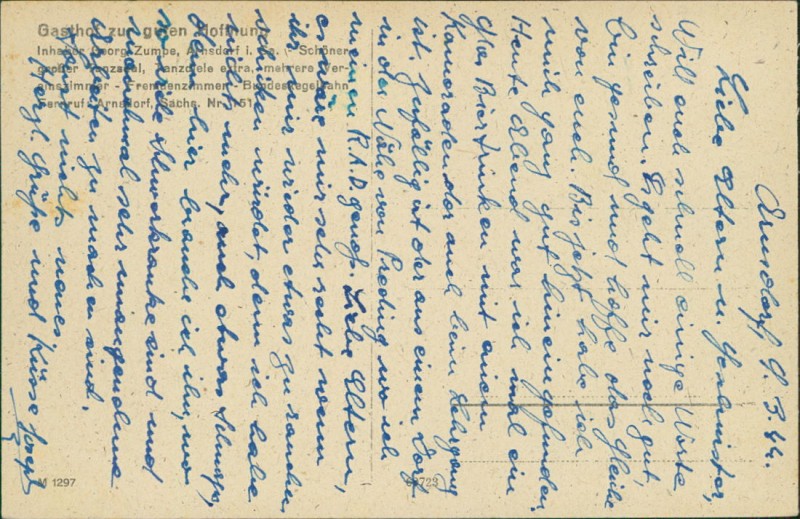 Gasthof zur guten Hoffnung
Inhaber Georg Zumpe, Arnsdorf i. Sa. - Schöner
großer Tanzsaal, Tanzdiele extra, mehrere Ver-
einszimmer - Fremdenzimmer - Bundeskegelbahn
Fernruf: Arnsdorf, Sachs. Nr. 151
Arnsdorf, 9. 3. 44.
Liebe Eltern u. Geschwister,
Will euch schnell einige Worte
schreiben. Es geht mir noch gut,
bin gesund und hoffe das gleiche
von euch. Bis jetzt habe ich
mich ganz gut hineingefunden.
Heute Abend war ich mal ein
Glas Biertrinken mit einem
Kameraden der auch beim Lehrgang
ist. Zufällig ist der aus einem Dorf
in der Nähe von Preding wo ich
meinen R.A.D. Liebe Eltern,
es wäre mir sehr recht wenn
ihr mir wieder etwas zu rauchen
schicken würdet, denn ich habe
nichts mehr, auch etwas Schnaps,
den hier brauche ich ihn, wo
soviele Schwerkranke sind und
manchmal sehr unangenehme
Arbeiten zu machen sind.
Sonst nichts neues
Herzl. Grüße und Küsse Josef
M 1297